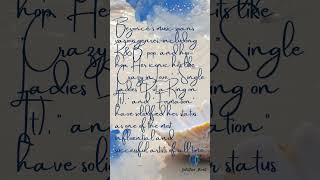 Beyoncé's music spans
various genres, including
R&B, pop, and hip-
hop. Her iconic hits like
"Crazy in Love," "Single
Ladies (Put a Ring on
It)," and "Formation"
have solidified her status
as one of the most
influential and
successful artists of all time.